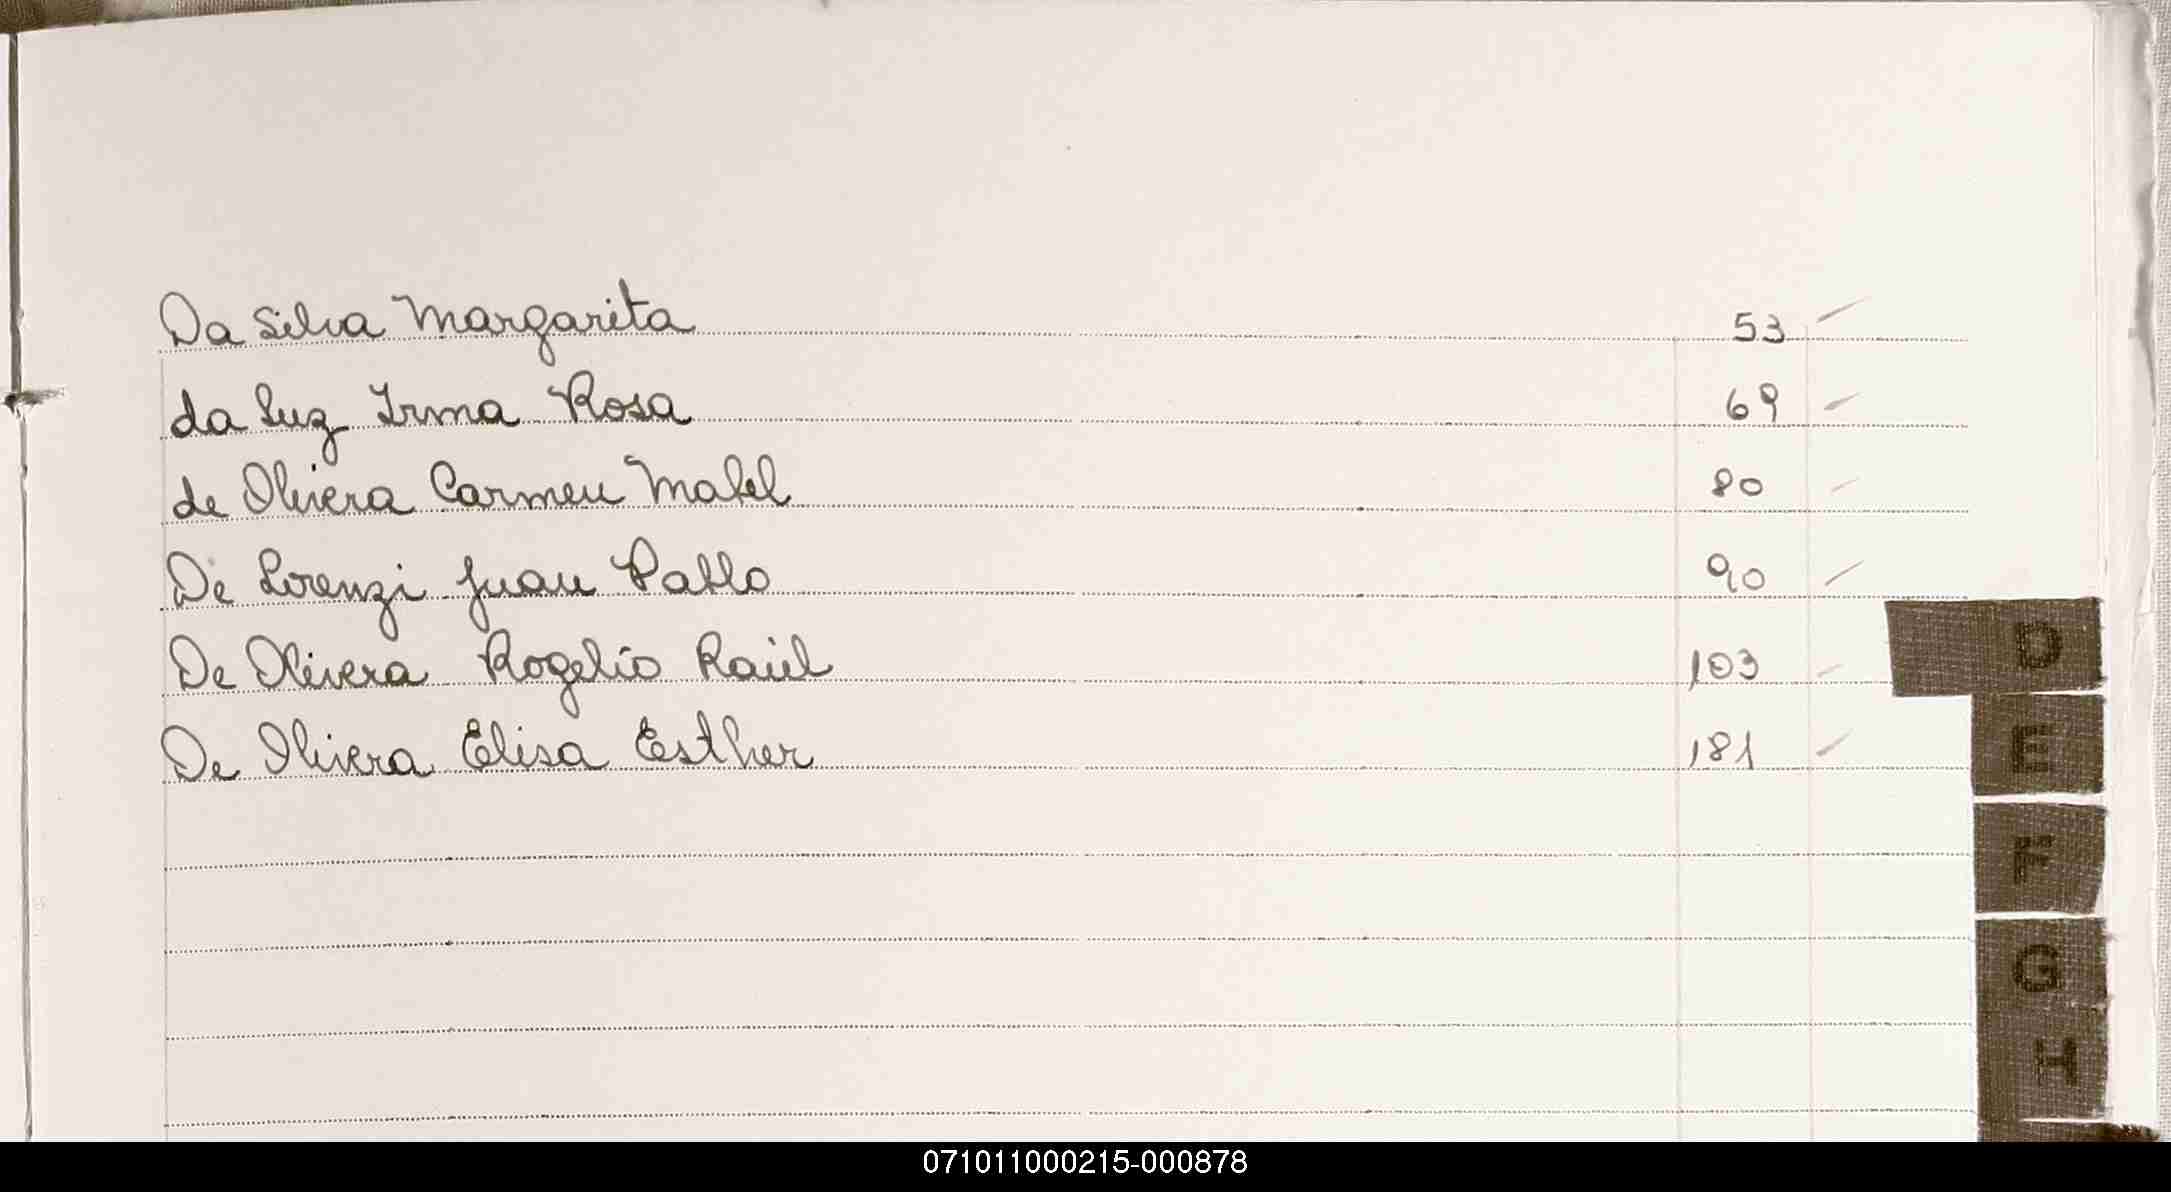 Da Silva Margarita 53
da Luz Irma Rosa 69
de Olivera Carmen Mabel 80
De Lorenzi Juan Pablo 90
De Olivera Rogelio Raúl 103
De Olivera Elisa Esther 181
D
E
F
G
H
071011000215-000878